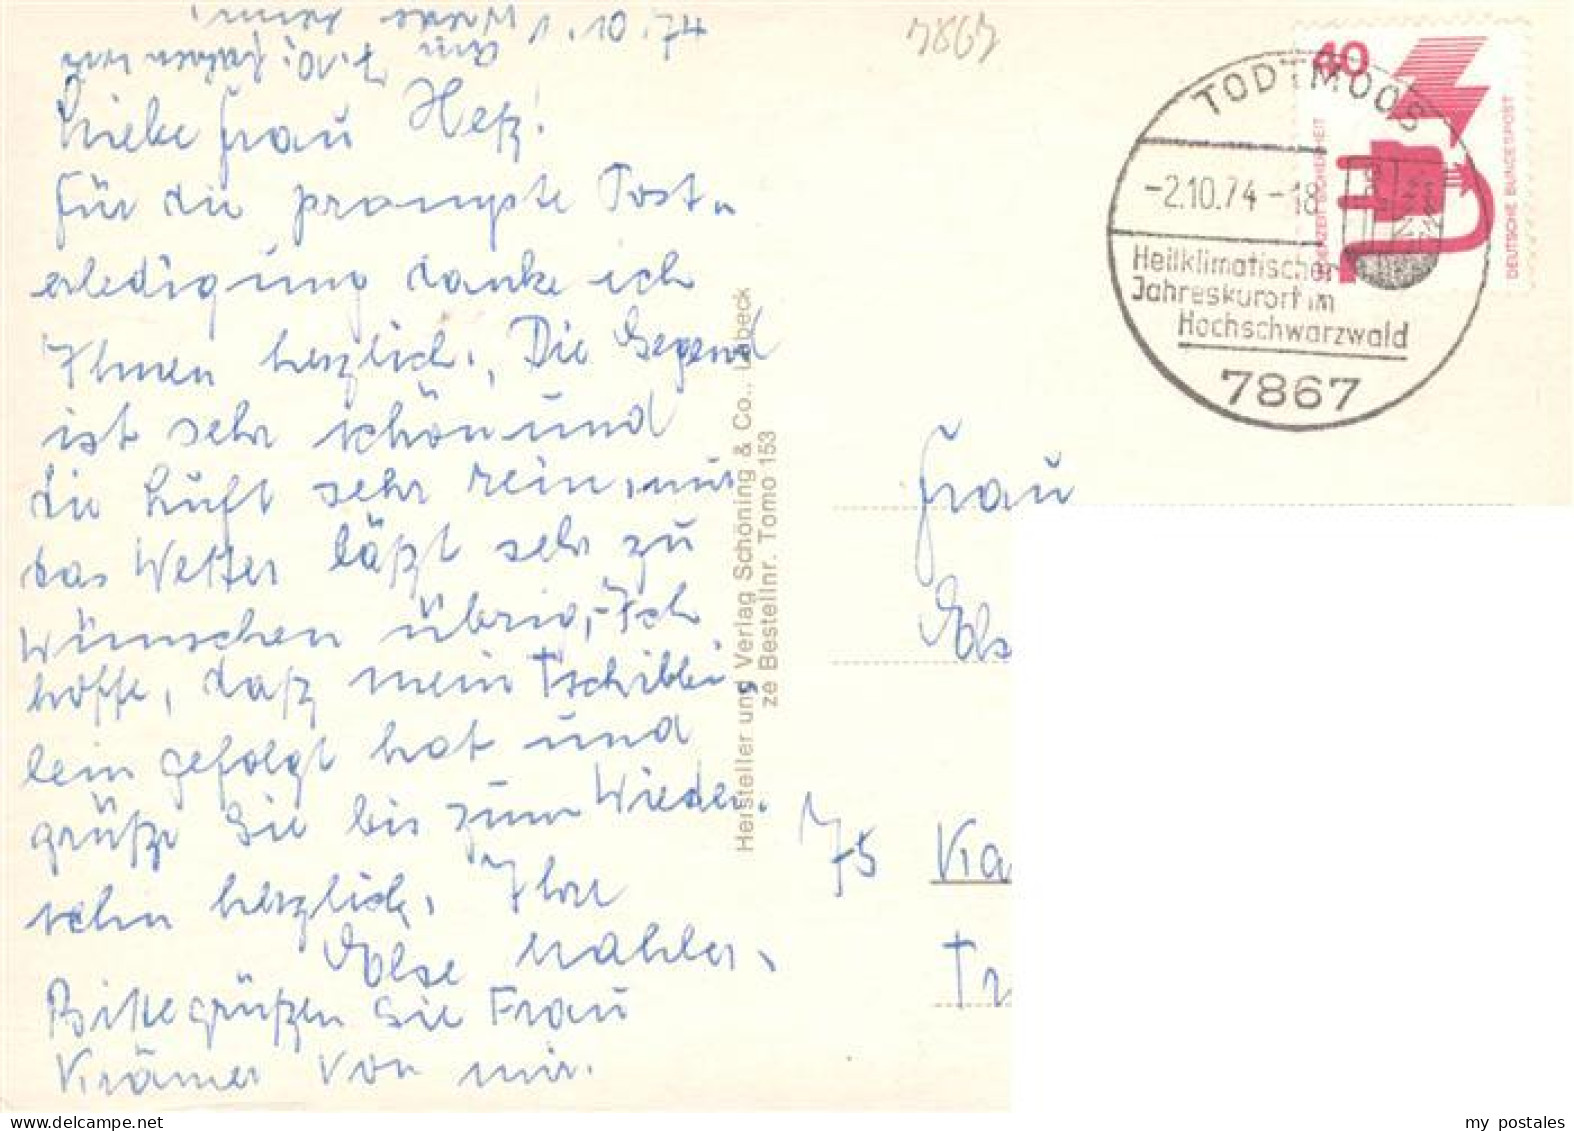 1.10.74
Am 7.10. fahren wir
Liebe Frau Heß!
Für die prompte Post-
erledigung danke ich
Ihnen herzlich. Die Gegend
ist sehr schön und
die Luft sehr rein, nur
das Wetter läßt sehr zu
wünschen übrig, - Ich
hoffe, daß mein Tschibbi,
lein gefolgt hat und
grüße Sie bis zum Wieder-
sehn herzlich, Ihre
Else Mahler,
Bitte grüßen Sie Frau
Krämer von mir.
Hersteller und Verlag Schöning & Co., Lübeck
ze Bestellnr. Tomo 153
7867
40
JEDERZEIT SICHERHEIT
DEUTSCHE BUNDESPOST
TODTMOOS
-2.10.74-18
Heilklimatischer
Jahreskurort im
Hochschwarzwald
7867
Frau
Els
75 Ka
Tr
my postales